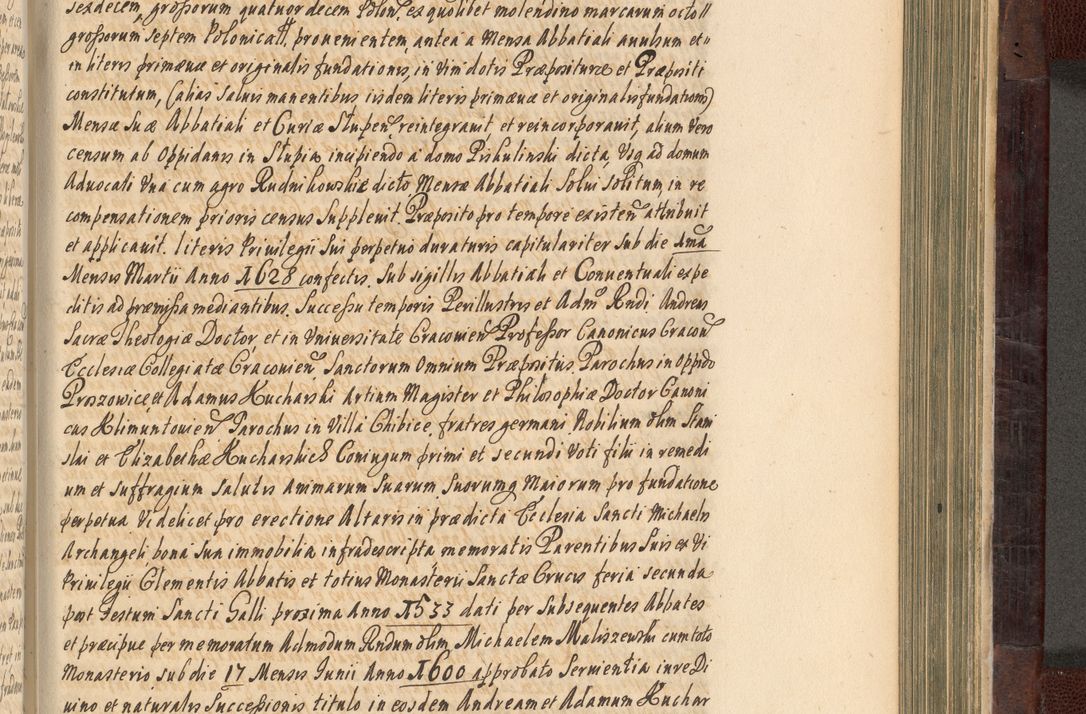 sexdecem, grossorum quatuordecem Polon. ex quolibet molendino marcarum octo
grossorum septem Polonicall, provenientem antea a Mensa Abbatiali avulsum et
in literis primævæ et originalis fundationis, in vim dotis Præposituræ et Præpositi
constitutum, (alias salvis manentibus iisdem literis primævæ et originalis fundationis)
Mensæ suæ Abbatiali et Curiæ Stupen reintegravit et reincorporavit, alium vero
censum ab Oppidanis in Stupia incipiendo a domo Piskulinski dicta, Usq ad domum
Advocali Una cum agro Rudnikowskie dicto Mensæ Abbatiali solui solitum in re
compensationem prioris census supplevit Præposito pro tempore existen attribuit
et applicavit. literis Privilegii sui perpetuo duraturis capitulariter sub die 1ma
Mensis Martii Anno 1628 confectis. sub sigillis Abbatiali et Conventuali expe
ditis ad præmissa mediantibus. Successu temporis Perillustris et Adm Rndi Andreas
Sacræ Theologiæ Doctor, et in Universitate Cracovien Professor Canonicus Cracov
Ecclesiæ Collegiatæ Cracovien, Sanctorum Omnium Præpositus, Parochus in Oppido
Proszowice, et Adamus Kucharski Artium Magister et Philosophiæ Doctor Canoni
cus Klimuntovien Parochus in Villa Chibice, fratres germani Nobilium olim Stani
slai et Elizabethæ Kucharskich Coniugum primi et secundi Voti filii in remedi
um et suffragium salutis Animarum suarum, suorumq Maiorum pro fundatione
perpetua Videlicet pro erectione Altaris in prædicta Ecclesia Sancti Michaelis
Archangeli bona sua immobilia infradescripta memoratis Parentibus suis ex Vi
Privilegii Clementis Abbatis et totius Monasterii Sanctæ Crucis feria secunda
post Festum Sancti Galli proxima Anno 1533 dati per subsequentes Abbates
et præcipue per memoratum Admodum Rndum olim Michaelem Maliszewski cum toto
Monasterio sub die 17 Mensis Junii Anno 1600 approbato Servientia iure Di
vino et naturalis Successionis titulo in eosdem Andream et Adamum Kuchar